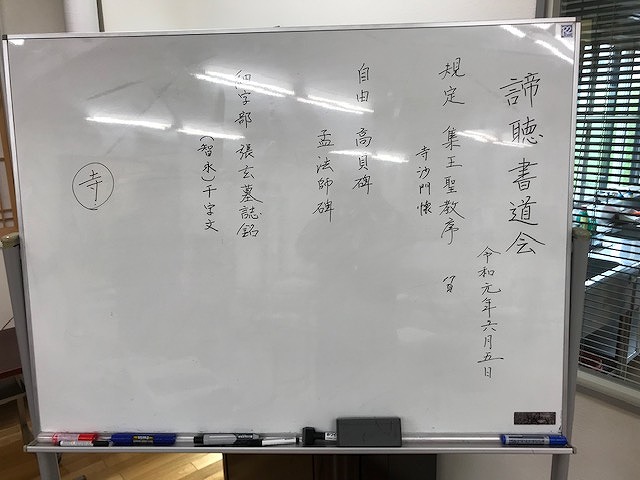 諦聴書道会
令和元年六月五日
規定 集王聖教序 貿
寺沙門懐
自由 高貞碑
孟法師碑
細字部 張玄墓誌銘
(智永)千字文
寺